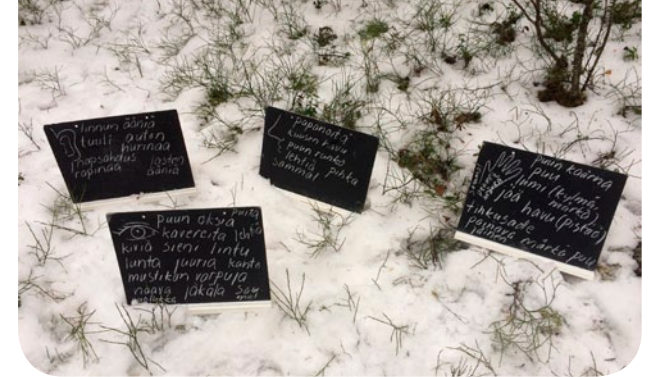 linnun ääniä
tuuli auton
hurinaa
lasten
rapinaa ääniä
papanoita
kuusen havu
puun runko
lehtiä pihka
sammal
puun kaarna
puu
lumi (kylmä,
märkä)
jää havu (pistää)
tihkusade
märkä puu
puita
puun oksia
kavereita
kiviä sieni lintu
lunta juuria kanto
mustikan varpuja
naava jäkälä